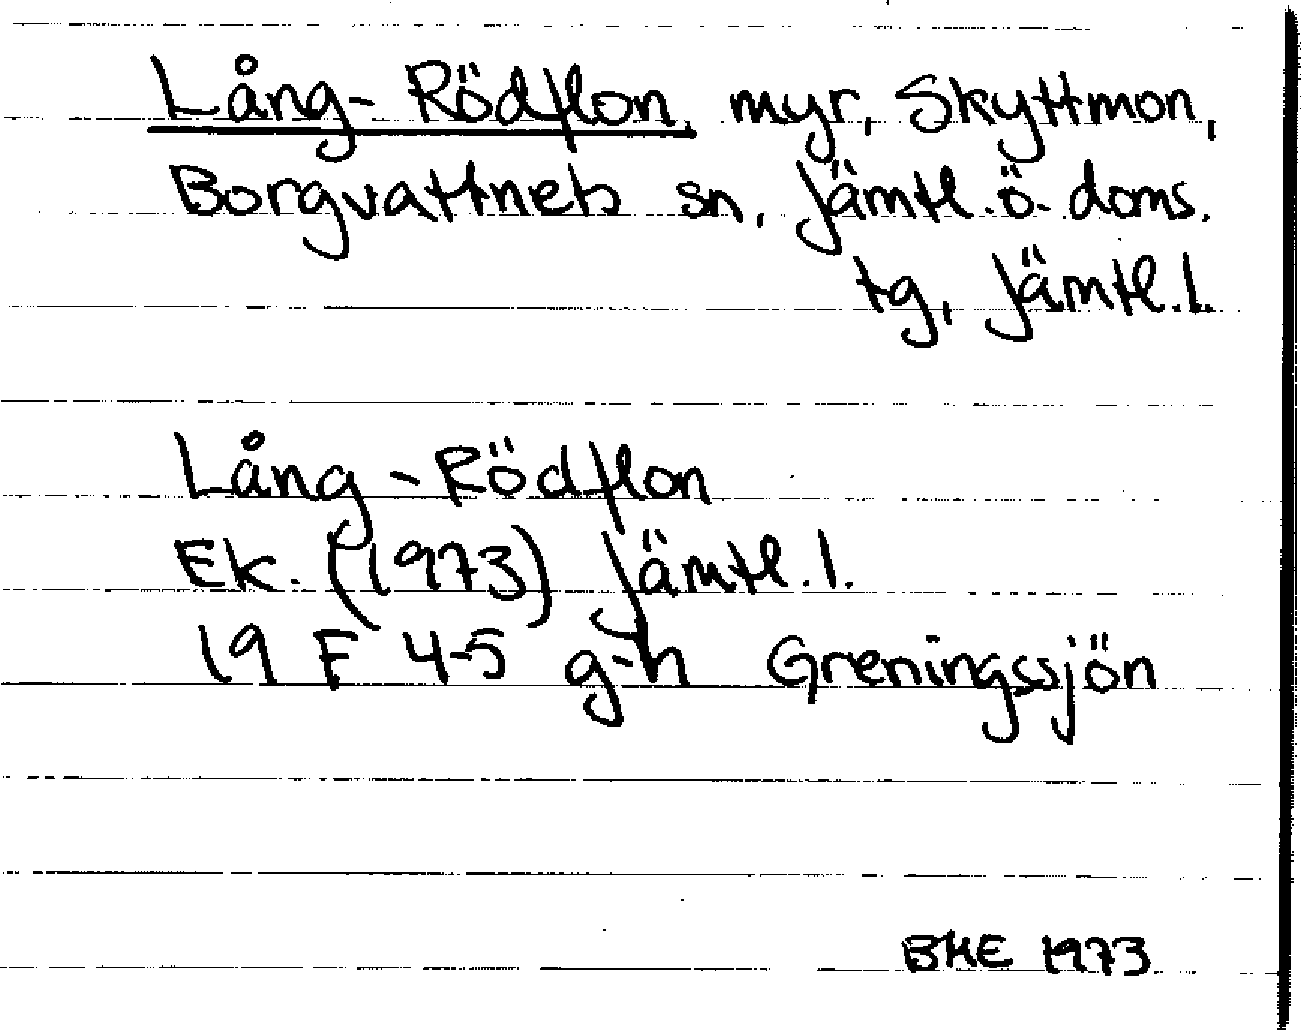 Lång-Rödflon, myr, Skyttmon,
Borgvattnets sn, Jämtl.ö. doms.
tg, Jämtl.l.
Lång-Rödflon
Ek. (1973) Jämtl.l.
19 F 4-5 g-h Greningssjön
BHE 1973